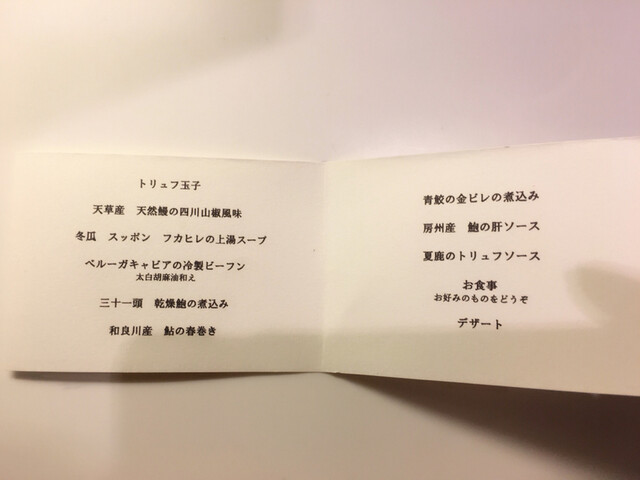 トリュフ玉子
天草産 天然鰻の四川山椒風味
冬瓜 スッポン フカヒレの上湯スープ
ベルーガキャビアの冷製ビーフン
太白胡麻油和え
三十一頭 乾燥鮑の煮込み
和良川産 鮎の春巻き
青鮫の金ビレの煮込み
房州産 鮑の肝ソース
夏鹿のトリュフソース
お食事
お好みのものをどうぞ
デザート